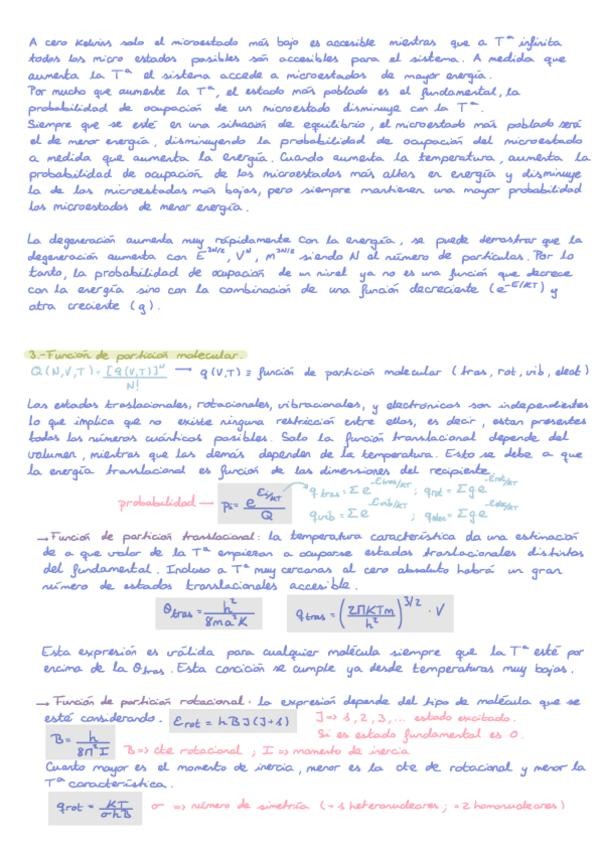 A cero Kelvins solo el microestado más bajo es accesible mientras que a Tª infinita
todos los micro estados posibles són accesibles para el sistema. A medida que
aumenta la Tª el sistema accede a microestados de mayor energía.
Por mucho que aumente la Tª, el estado más poblado es el fundamental, la
probabilidad de ocupación de un microestado disminuye con la Tª.
Siempre que se esté en una situación de equilibrio, el microestado más poblado será
el de menor energía, disminuyendo la probabilidad de ocupación del microestado
a medida que aumenta la energía. Cuando aumenta la temperatura, aumenta la
probabilidad de ocupación de los microestados más altos en energía y disminuye
la de los microestados más bajos, pero siempre mantienen una mayor probabilidad
los microestados de menor energía.
La degeneración aumenta muy rápidamente con la energía, se puede demostrar que la
degeneración aumenta con E^3N/2, V^N, m^3N/2 siendo N el número de partículas. Por lo
tanto, la probabilidad de ocupación de un nivel ya no es una función que decrece
con la energía sino con la combinación de una función decreciente (e^-E/KT) y
otra creciente (g).
3.-Función de partición molecular.
Q(N,V,T) = [q(V,T)]^N / N! → q(V,T) ≡ función de partición molecular (tras, rot, vib, elect)
Los estados traslacionales, rotacionales, vibracionales, y electrónicos son independientes
lo que implica que no existe ninguna restricción entre ellos, es decir, estan presentes
todos los números cuánticos posibles. Solo la función translacional depende del
volumen, mientras que las demás dependen de la temperatura. Esto se debe a que
la energía translacional es función de las dimensiones del recipiente.
probabilidad → Pi = e^-Ei/KT / Q q tras = Σ e^-Etras/KT ; q rot = Σ g e^-Erot/KT
q vib = Σ e^-Evib/KT ; q elec = Σ g e^-Eelec/KT
→ Función de partición translacional: la temperatura característica da una estimación
de a que valor de la Tª empiezan a ocuparse estados translacionales distintos
del fundamental. Incluso a Tª muy cercanas al cero absoluto habrá un gran
número de estados translacionales accesible.
θtras = h² / 8ma²K q tras = (2ΠKTm / h²)^3/2 · V
Esta expresión es válida para cualquier molécula siempre que la Tª esté por
encima de la θtras. Esta condición se cumple ya desde temperaturas muy bajas.
→ Función de partición rotacional: la expresión depende del tipo de molécula que se
esté considerando. Erot = hBJ(J+1) J => 1, 2, 3, ... estado excitado.
Si es estado fundamental es 0.
B = h / 8Π²I B => cte rotacional ; I => momento de inercia
Cuanto mayor es el momento de inercia, menor es la cte de rotacional y menor la
Tª característica.
q rot = KT / σhB σ => número de simetría (=1 heteronucleares; =2 homonucleares)